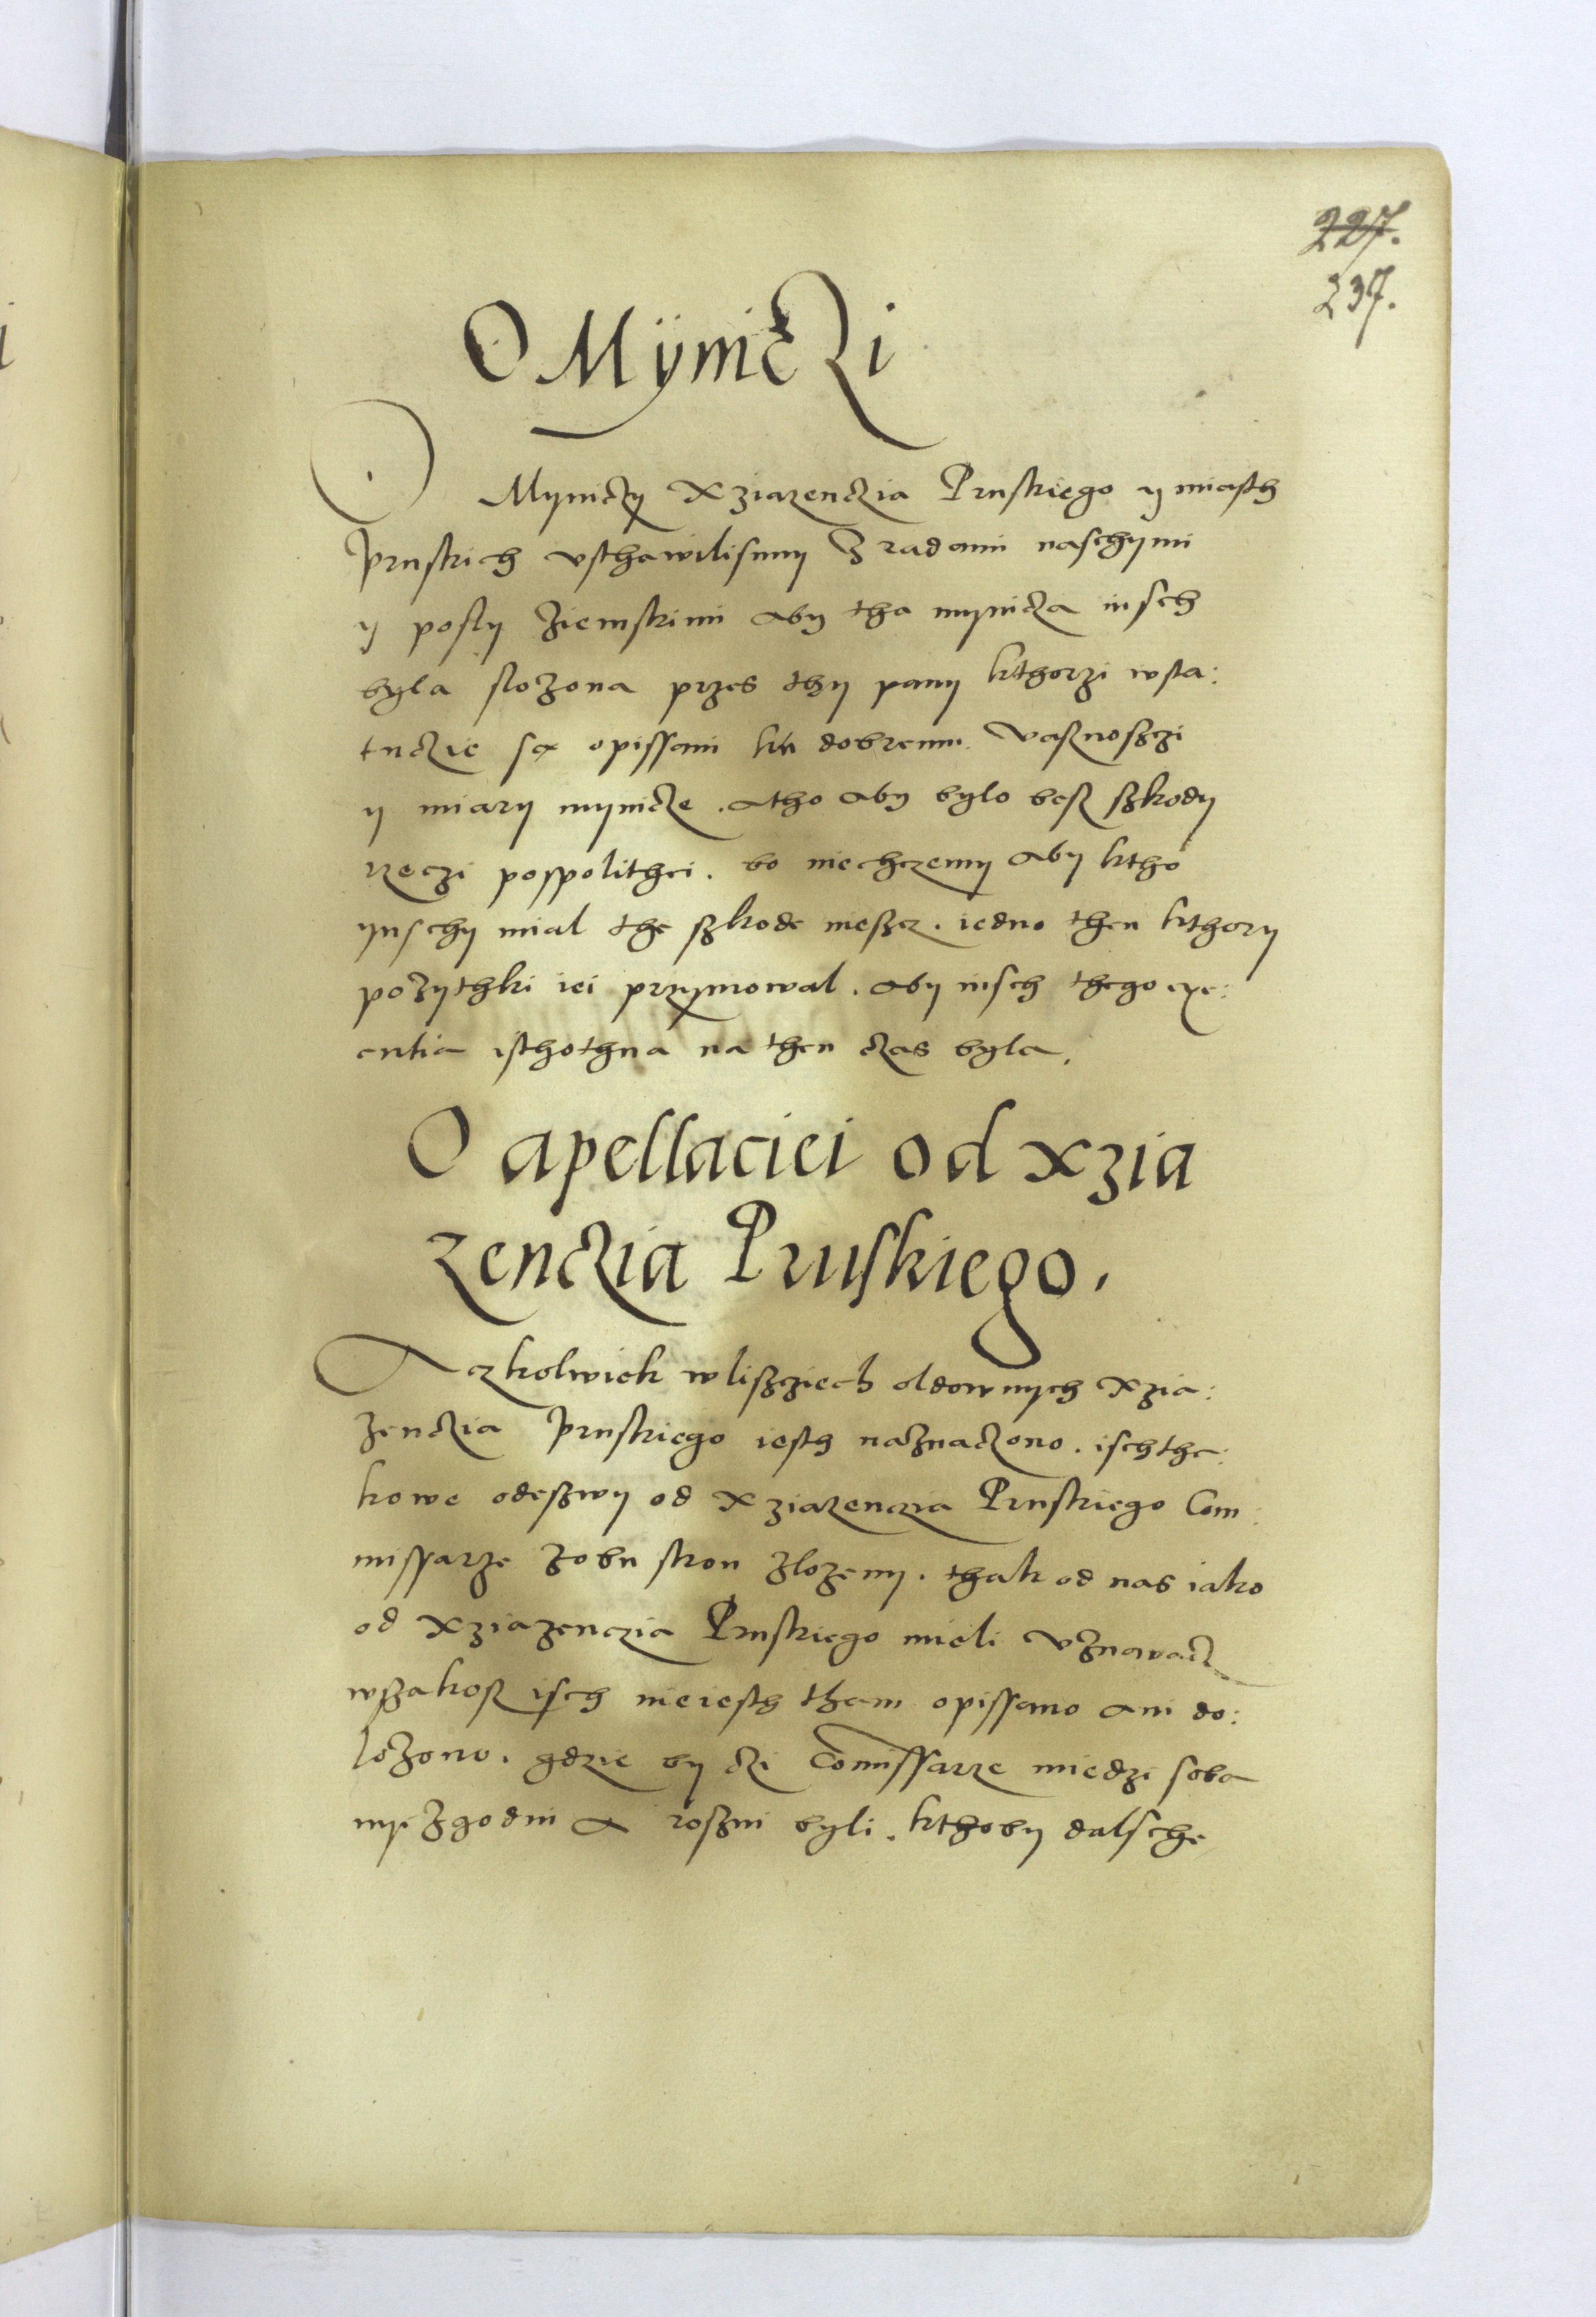 227.
237.
O Mÿniczi
O Mÿniczÿ Xziazenczia Pruskiego ÿ miasth
Pruskich vsthawilismÿ Z radami naschÿmi
ÿ poslÿ Ziemskimi abÿ tha mÿnicza iusch
bÿla sloZona przes thÿ panÿ kthorzi wsta:
tuczie sa opissani ku dobremu. VaZnosczi
ÿ miarÿ mÿnicze. atho abÿ bÿlo besz szkodÿ
rzeczi pospolithei. bo niechczemÿ abÿ ktho
ÿnschÿ mial the szkode niescz. iedno then kthorÿ
poZÿthki iei prziÿmowal. abÿ iusch thego exe:
cutia isthothna na then czas bÿla.
O apellaciei od xzia
zenczia Pruskiego.
Aczkolwiek w liscziech oldownÿch xzia:
zenczia Pruskiego iesth naZnaczono. isch tha:
kowe odeszwÿ od Xziazenczia Pruskiego Com:
missarze Zobu stron ZloZenÿ. thak od nas iako
od Xziazenczia Pruskiego mieli vZnawacz
wszakosz isch nieiesth tham opissano ani do:
loZono. gdzie bÿ czi Comissarze miedzi soba
nyeZgodni a roszni bÿli. kthobÿ dalsche